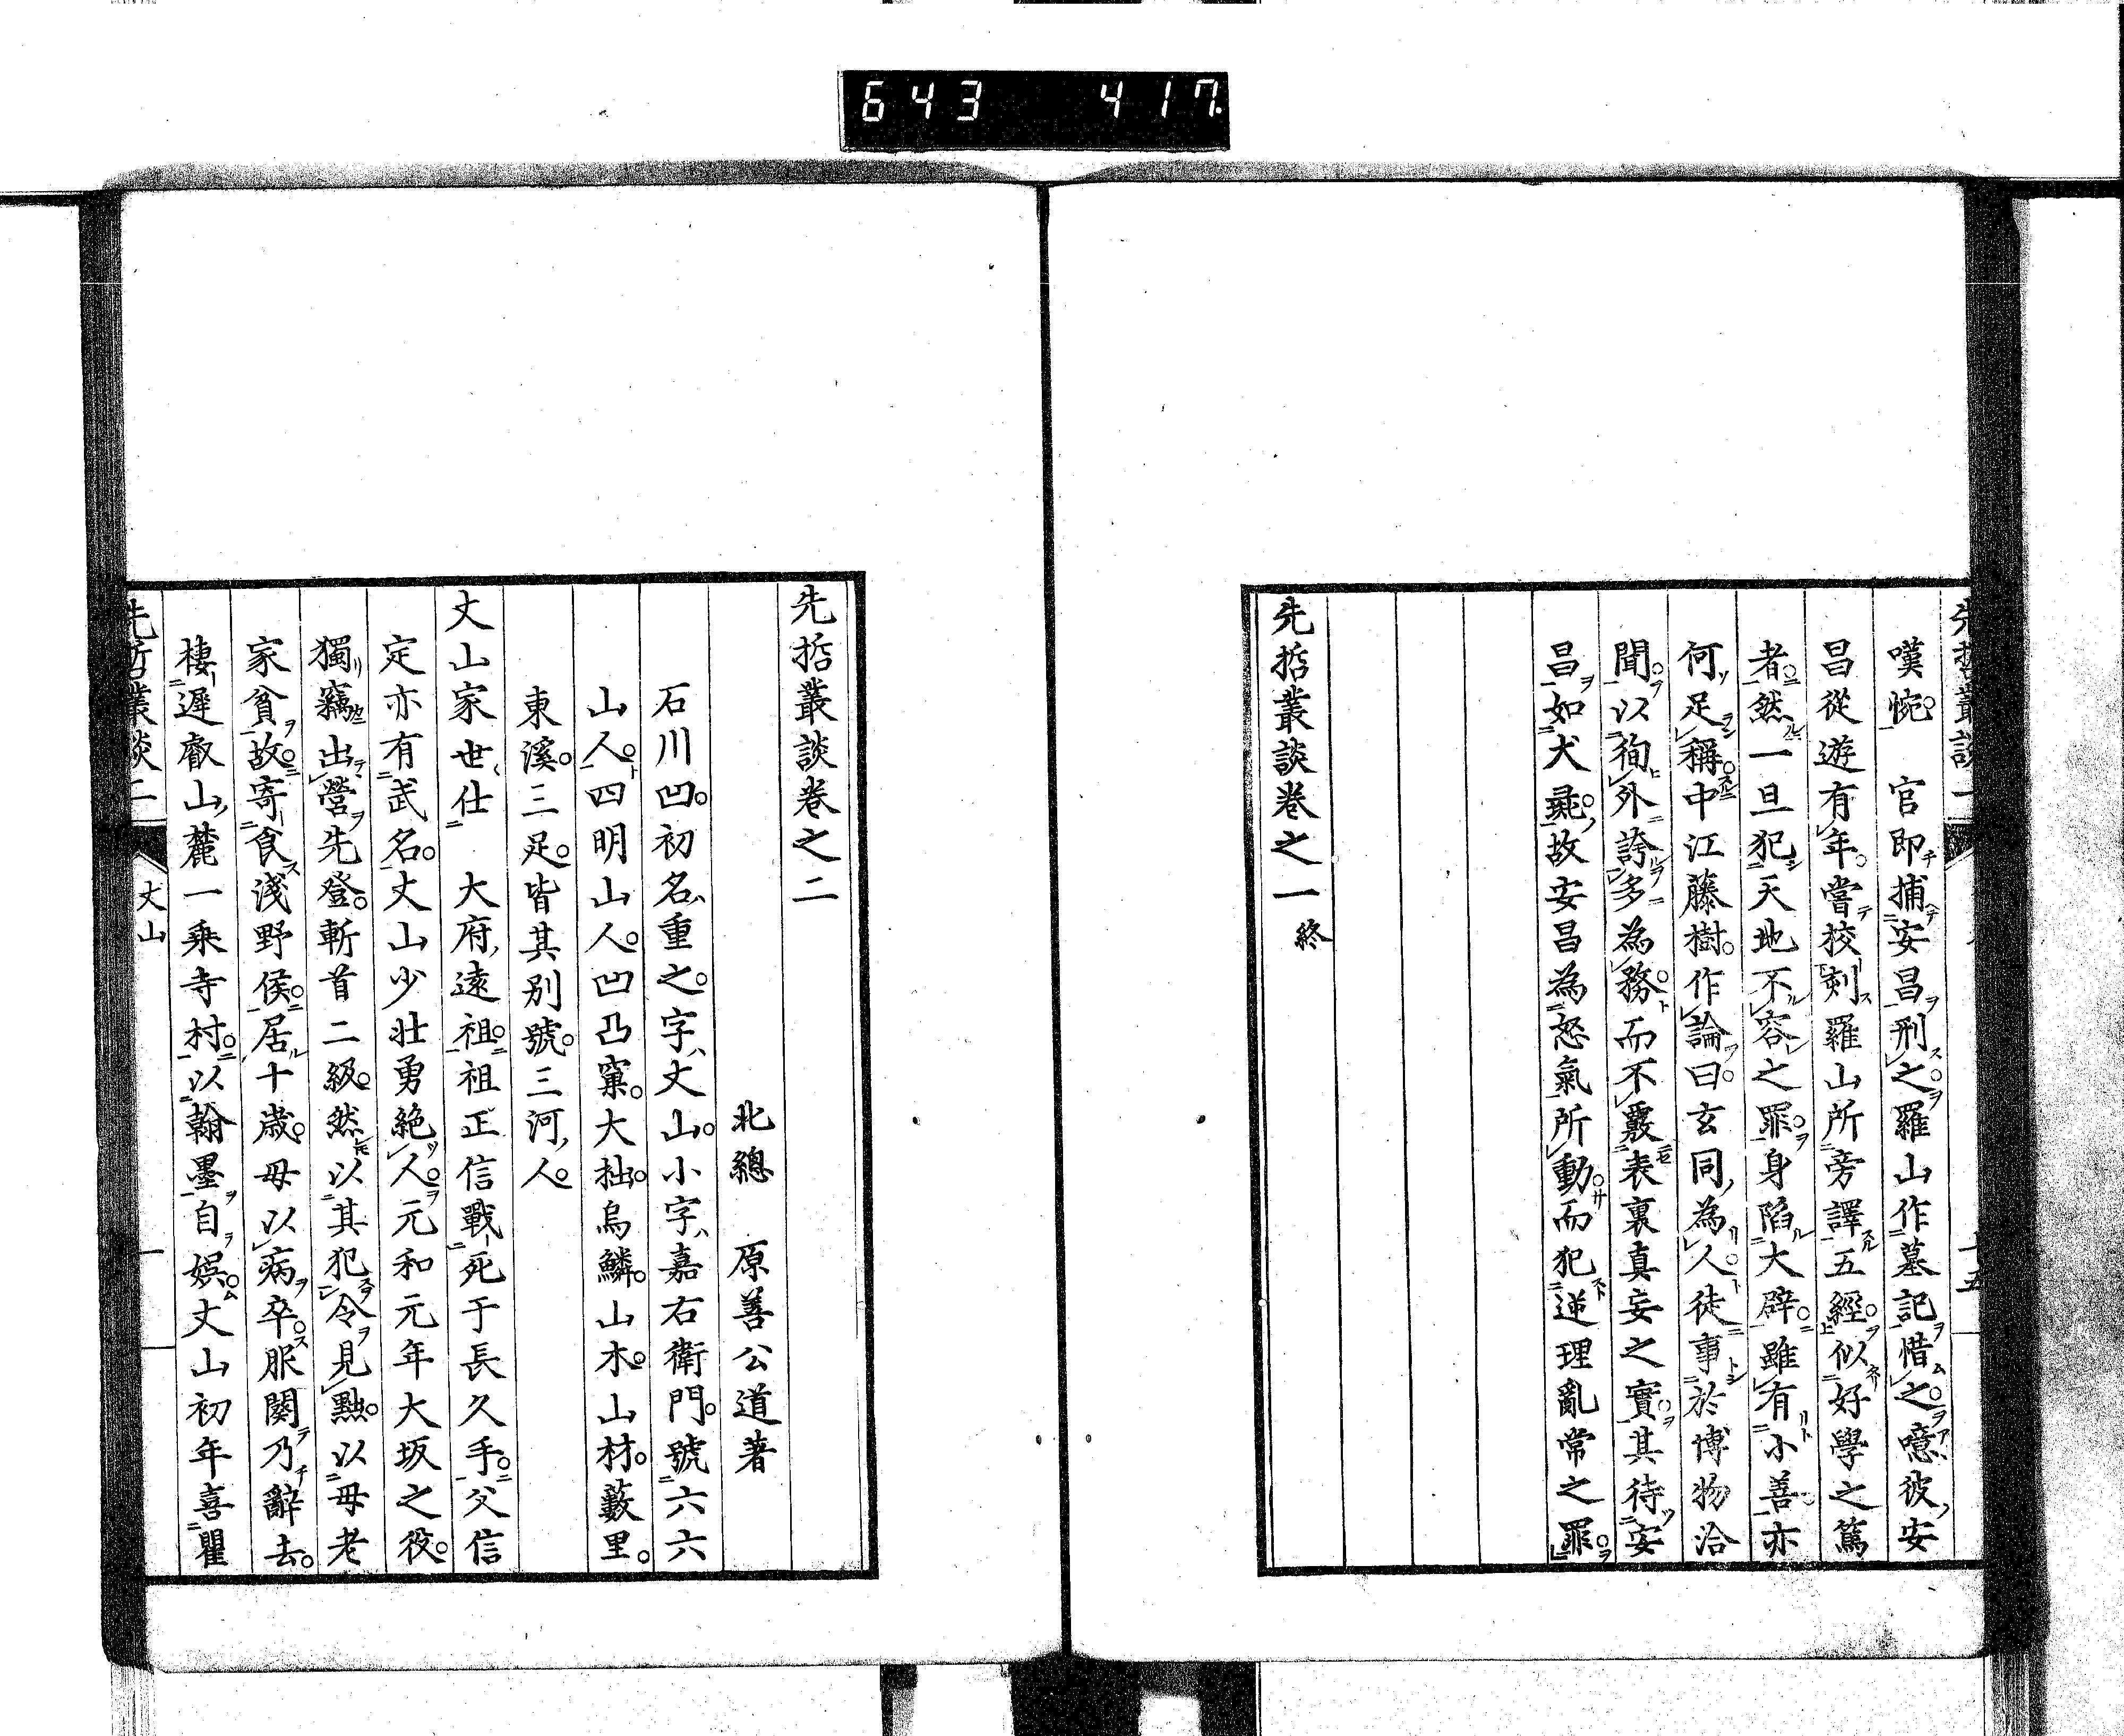 643 417
先哲叢談一
十五
嘆惋。 官即捕安昌刑之。羅山作墓記惜之。噫彼安
昌從遊有年。嘗校刻羅山所旁譯五經。似好學之篤
者。然一旦犯天地不容之罪。身陷大辟。雖有小善。亦
何足稱。中江藤樹。作論曰。玄同為人。徒事於博物洽
聞。以徇外誇多為務。而不覈表裏真妄之實。其待安
昌如犬彘。故安昌為怒氣所動。而犯逆理亂常之罪。
先哲叢談卷之一 終
先哲叢談卷之二
北總 原善公道著
石川凹。初名重之。字丈山。小字嘉右衛門。號六六
山人。四明山人。凹凸窠。大拙。烏鱗。山木。山材。藪里。
東溪。三足。皆其別號。三河人。
丈山家世仕 大府遠祖。祖正信戰死于長久手。父信
定亦有武名。丈山少壯勇絶人。元和元年大坂之役。
獨竊出營先登。斬首二級。然以其犯令見黜。以母老
家貧故。寄食淺野侯。居十歳。母以病卒。服闋乃辭去。
棲遲叡山麓一乘寺村。以翰墨自娯。丈山初年喜瞿
先哲叢談二
丈山
一